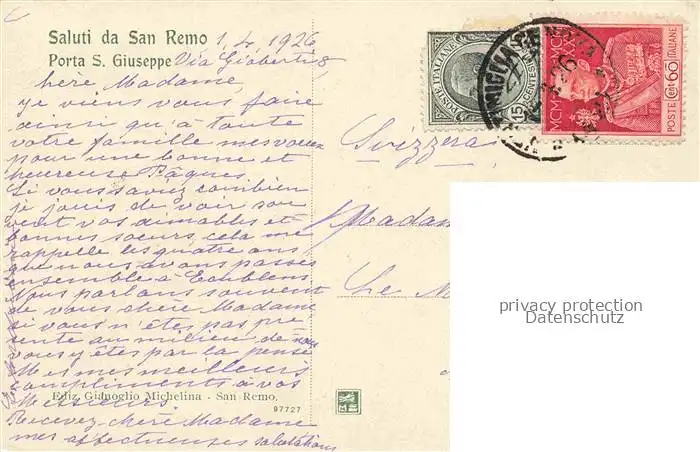 Saluti da San Remo 1.4.1926
Porta S. Giuseppe Via Gioberti 8
Chère Madame,
je viens vous faire
ainsi qu'à toute
votre famille mes vœux
pour une bonne et
heureuse Pâques.
Si vous saviez combien
je jouis de voir sou
vent vos aimables et
bonnes sœurs, cela me
rappelle les quatre ans
que nous avons passés
ensemble à Ecublens
Nous parlons souvent
de vous chère Madame
si vous n'êtes pas pré
sente au milieu de nous
vous y êtes par la pensée
Mes meilleurs
compliments à vos
Messieurs
Ediz. Gianoglio Michelina - San Remo.
97727
Recevez chère Madame
mes affectueuses salutations
POSTE ITALIANE
15
POSTE Cent 60 ITALIANE
Svizzera
Madam
Le M
privacy protection
Datenschutz